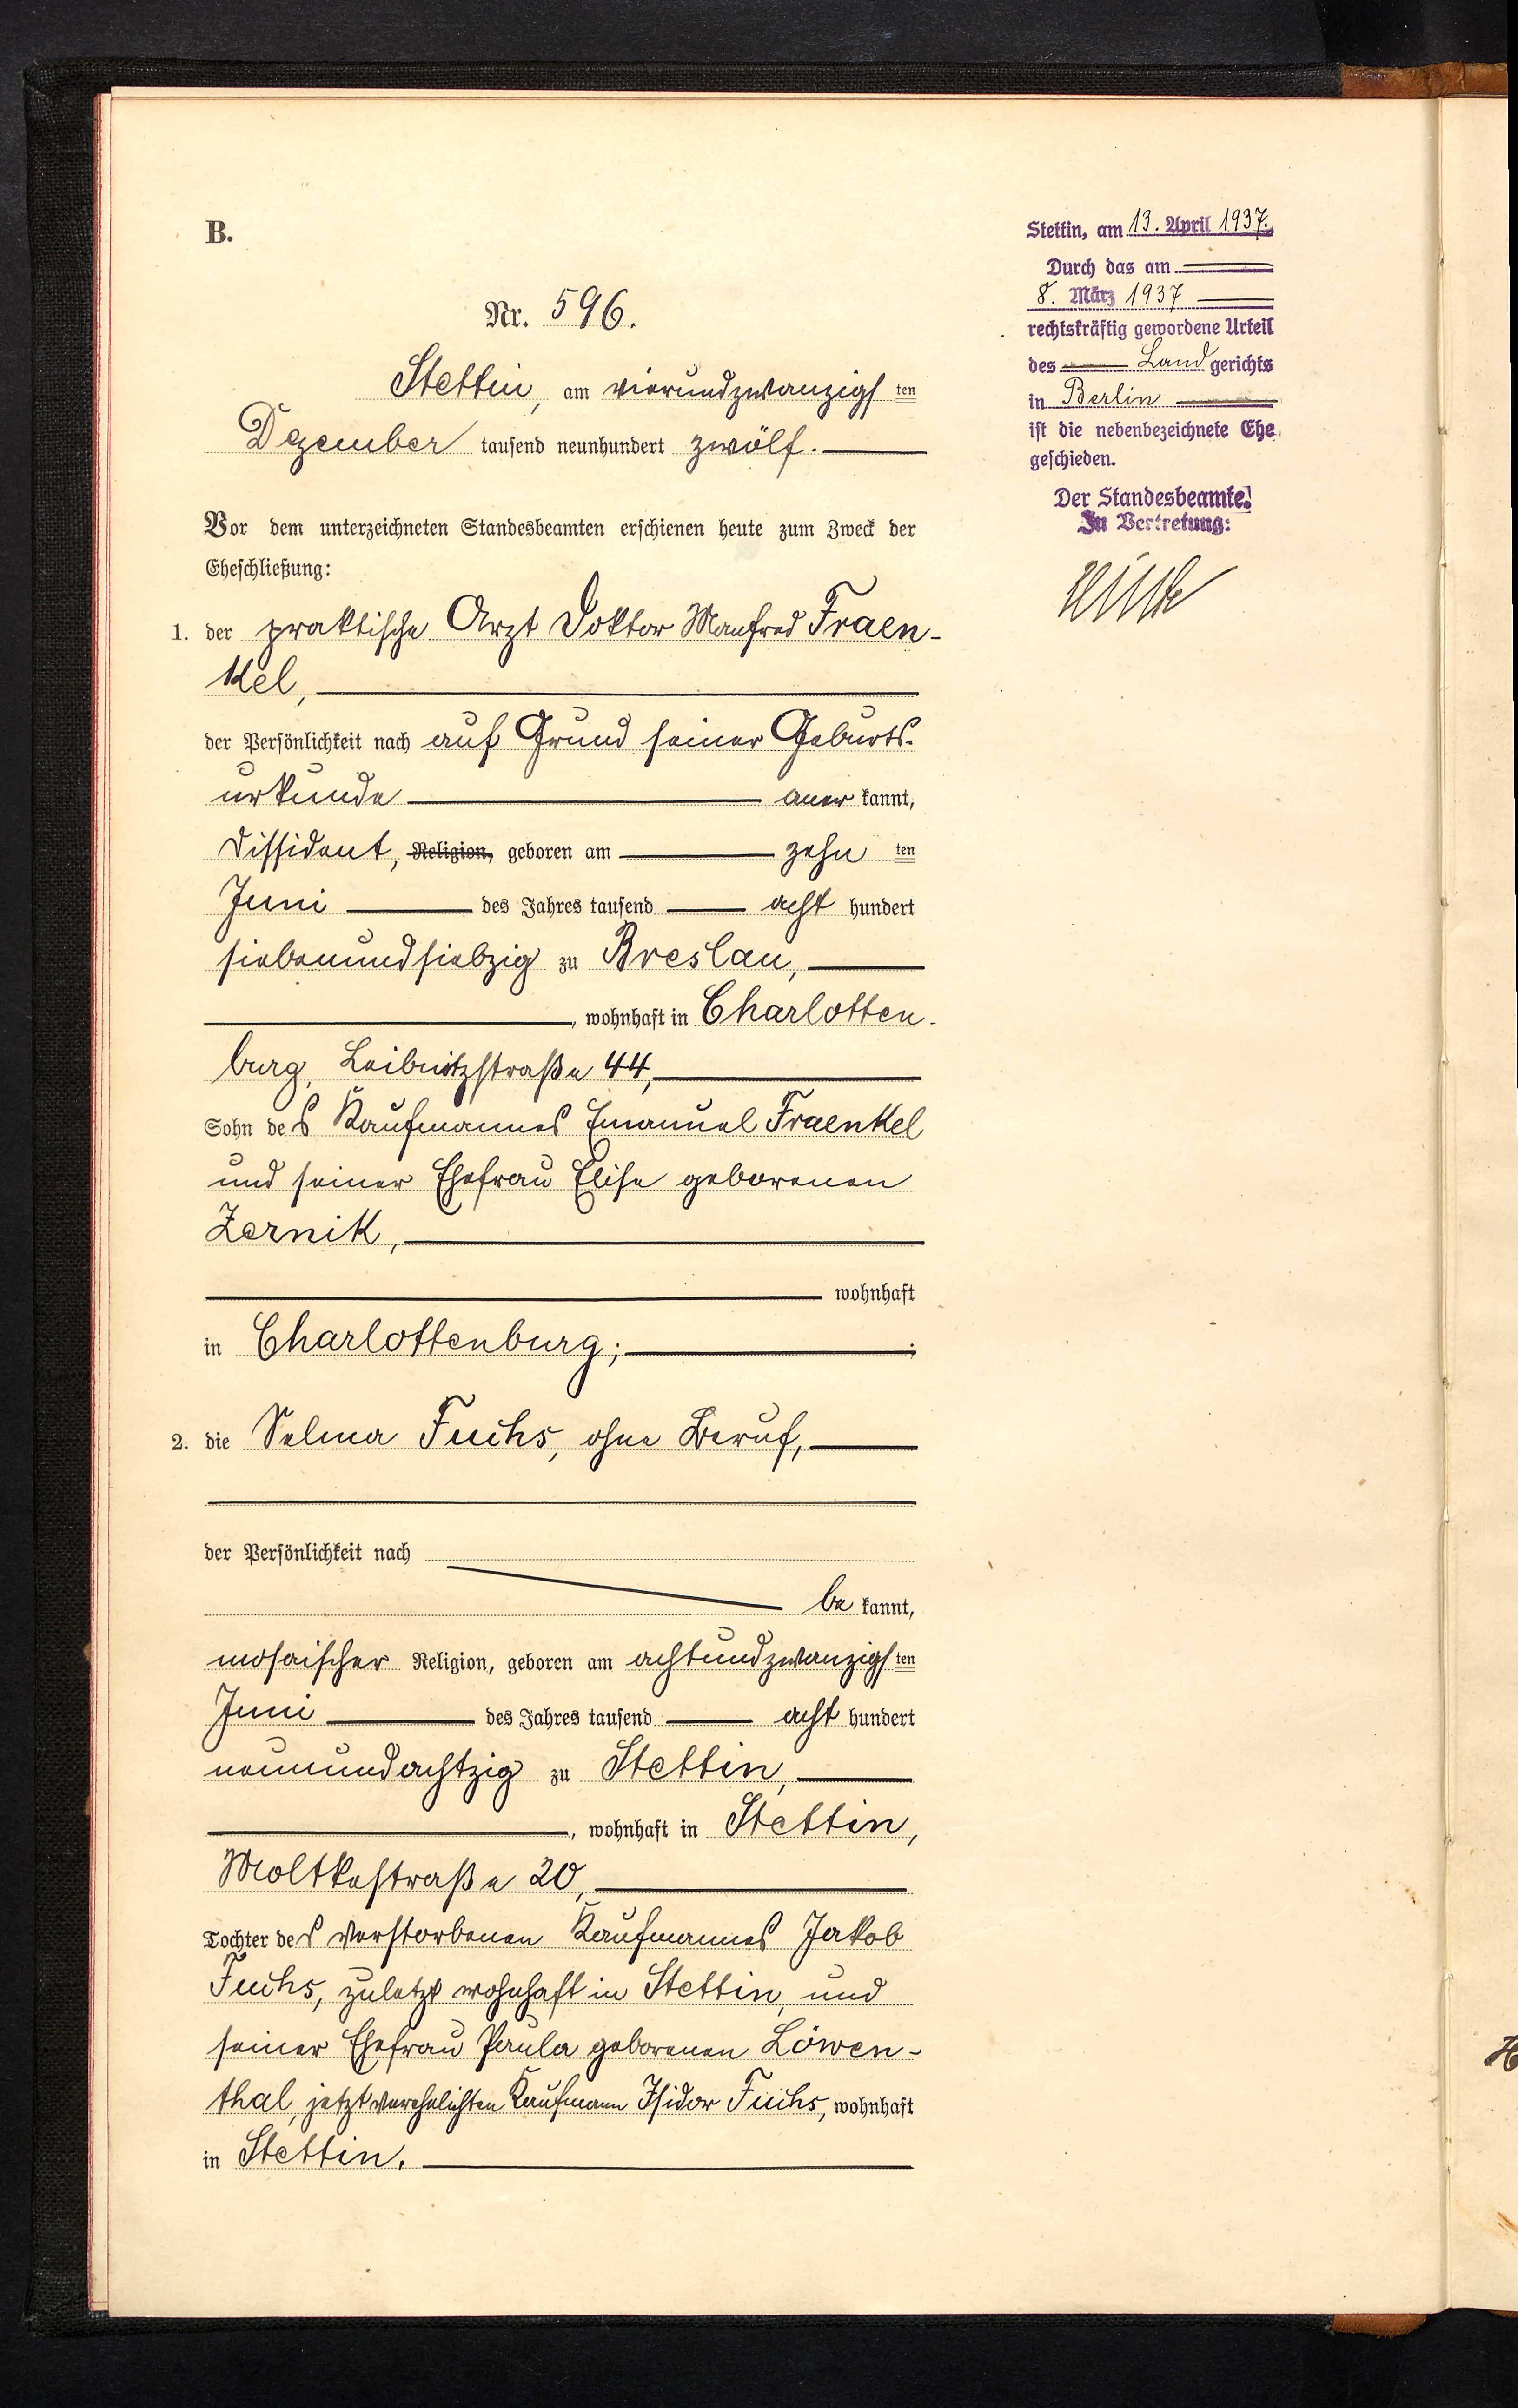 B.
Nr. 596.
Stettin, am vierundzwanzigsten
Dezember tausend neunhundert zwölf.
Vor dem unterzeichneten Standesbeamten erschienen heute zum Zweck der
Eheschließung:
1. der praktische Arzt Doktor Manfred Fraen-
kel,
der Persönlichkeit nach auf Grund seiner Geburts-
urkunde anerkannt,
Dissident, Religion, geboren am zehnten
Juni des Jahres tausend acht hundert
siebenundsiebzig zu Breslau,
, wohnhaft in Charlotten-
burg, Leibnitzstraße 44,
Sohn des Kaufmannes Emanuel Fraenkel
und seiner Ehefrau Elise geborenen
Zernik,
wohnhaft
in Charlottenburg; ;
2. die Selma Fuchs, ohne Beruf,
der Persönlichkeit nach
bekannt,
mosaischer Religion, geboren am achtundzwanzigsten
Juni des Jahres tausend acht hundert
neunundachtzig zu Stettin,
, wohnhaft in Stettin,
Moltkestraße 20,
Tochter des verstorbenen Kaufmannes Jakob
Fuchs, zuletzt wohnhaft in Stettin, und
seiner Ehefrau Paula geborenen Löwen-
thal, jetzt verehelichten Kaufmann Isidor Fuchs, wohnhaft
in Stettin.
Stettin, am 13. April 1937.
Durch das am
8. März 1937
rechtskräftig gewordene Urteil
des Landgerichts
in Berlin
ist die nebenbezeichnete Ehe
geschieden.
Der Standesbeamte.
In Vertretung: